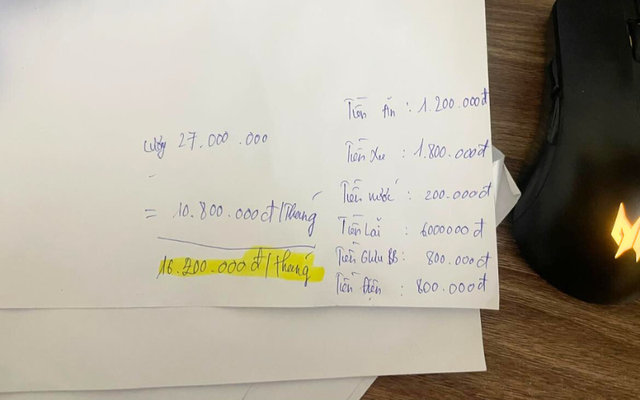 Lương 27.000.000
-
= 10.800.000đ/tháng
16.200.000đ/tháng
Tiền Ăn : 1.200.000đ
Tiền Xe : 1.800.000đ
Tiền nước : 200.000đ
Tiền Lãi : 6000000đ
Tiền : 800.000đ
Tiền Điện : 800.000đ